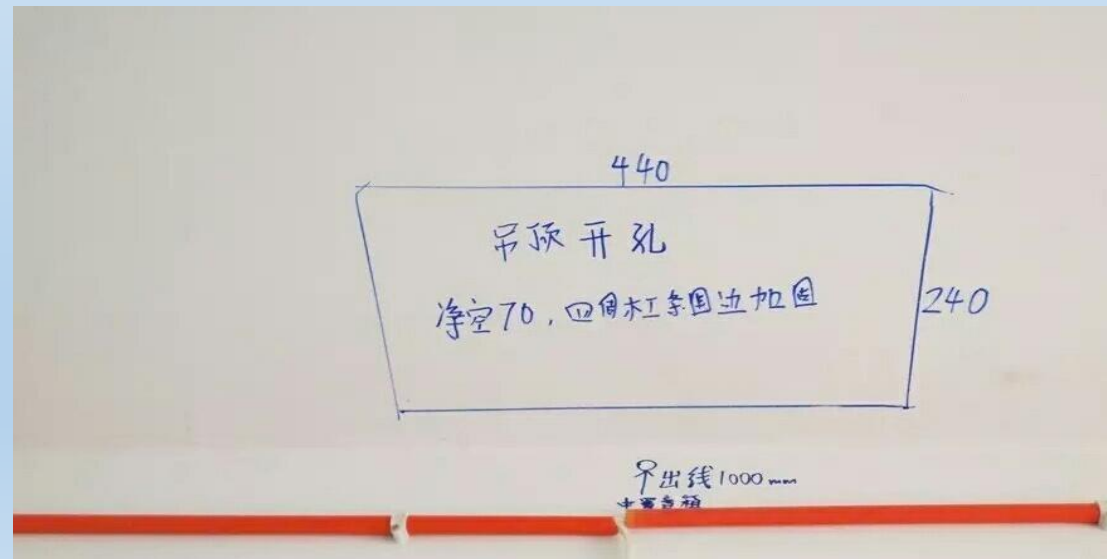 440
吊顶开孔
净空70,四周木工条围边加固
240
出线1000mm
中置音箱